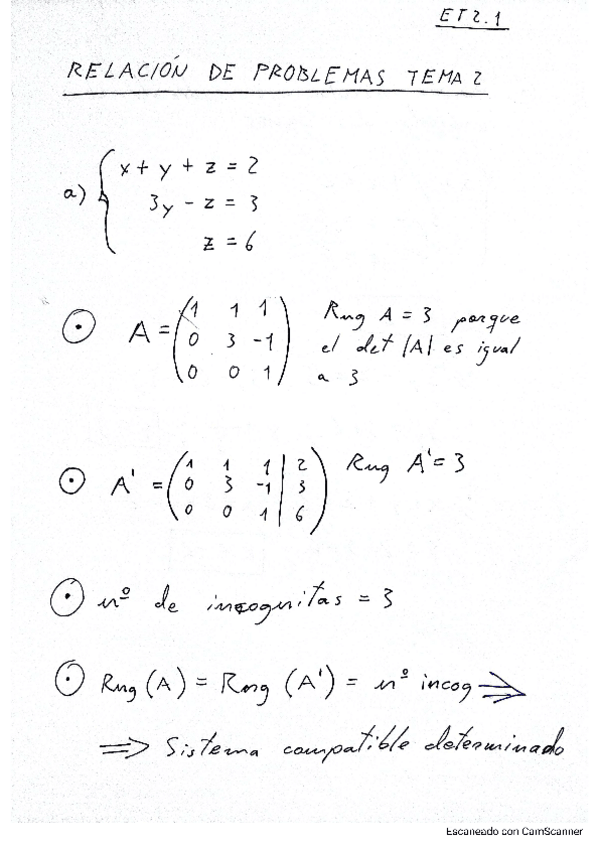 ET2.1
RELACIÓN DE PROBLEMAS TEMA 2
a) { x + y + z = 2
3y - z = 3
z = 6
⊙ A = ( 1 1 1 Rng A = 3 porque
0 3 -1 el det |A| es igual
0 0 1 ) a 3
⊙ A' = ( 1 1 1 | 2 Rng A' = 3
0 3 -1 | 3
0 0 1 | 6 )
⊙ nº de incognitas = 3
⊙ Rng (A) = Rng (A') = nº incog ⇒
⇒ Sistema compatible determinado
Escaneado con CamScanner